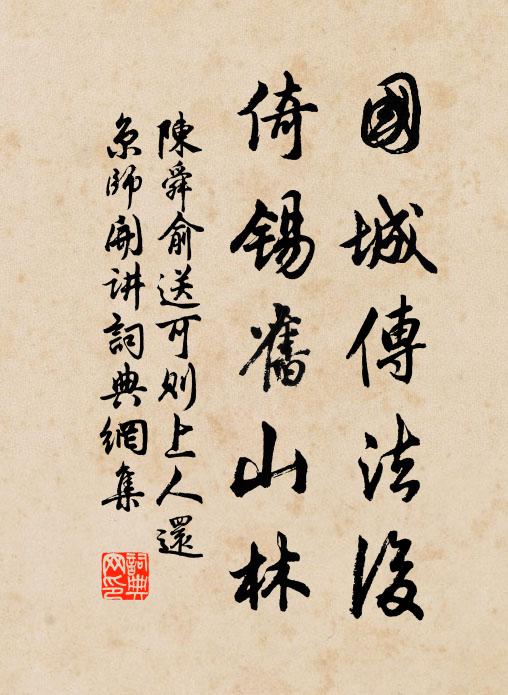 國城傳法後
倚錫舊山林
陳舜俞送可則上人還
京師開讲詞典網集
詞典
网印